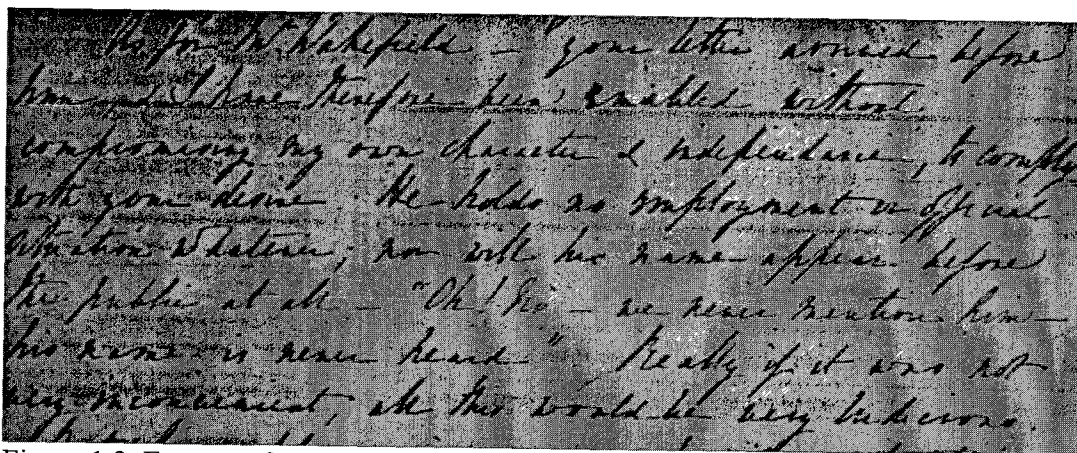 As for Mr. Wakefield – your letter arrived before
him and I have therefore been enabled without
compromising my own character & independance, to comply
with your desire. He holds no employment or official
situation whatever, nor will his name appear before
the public at all – "Oh! No – we never mention him –
his name is never heard". Really if it was not
very inconvenient, all this would be very ludicrous.